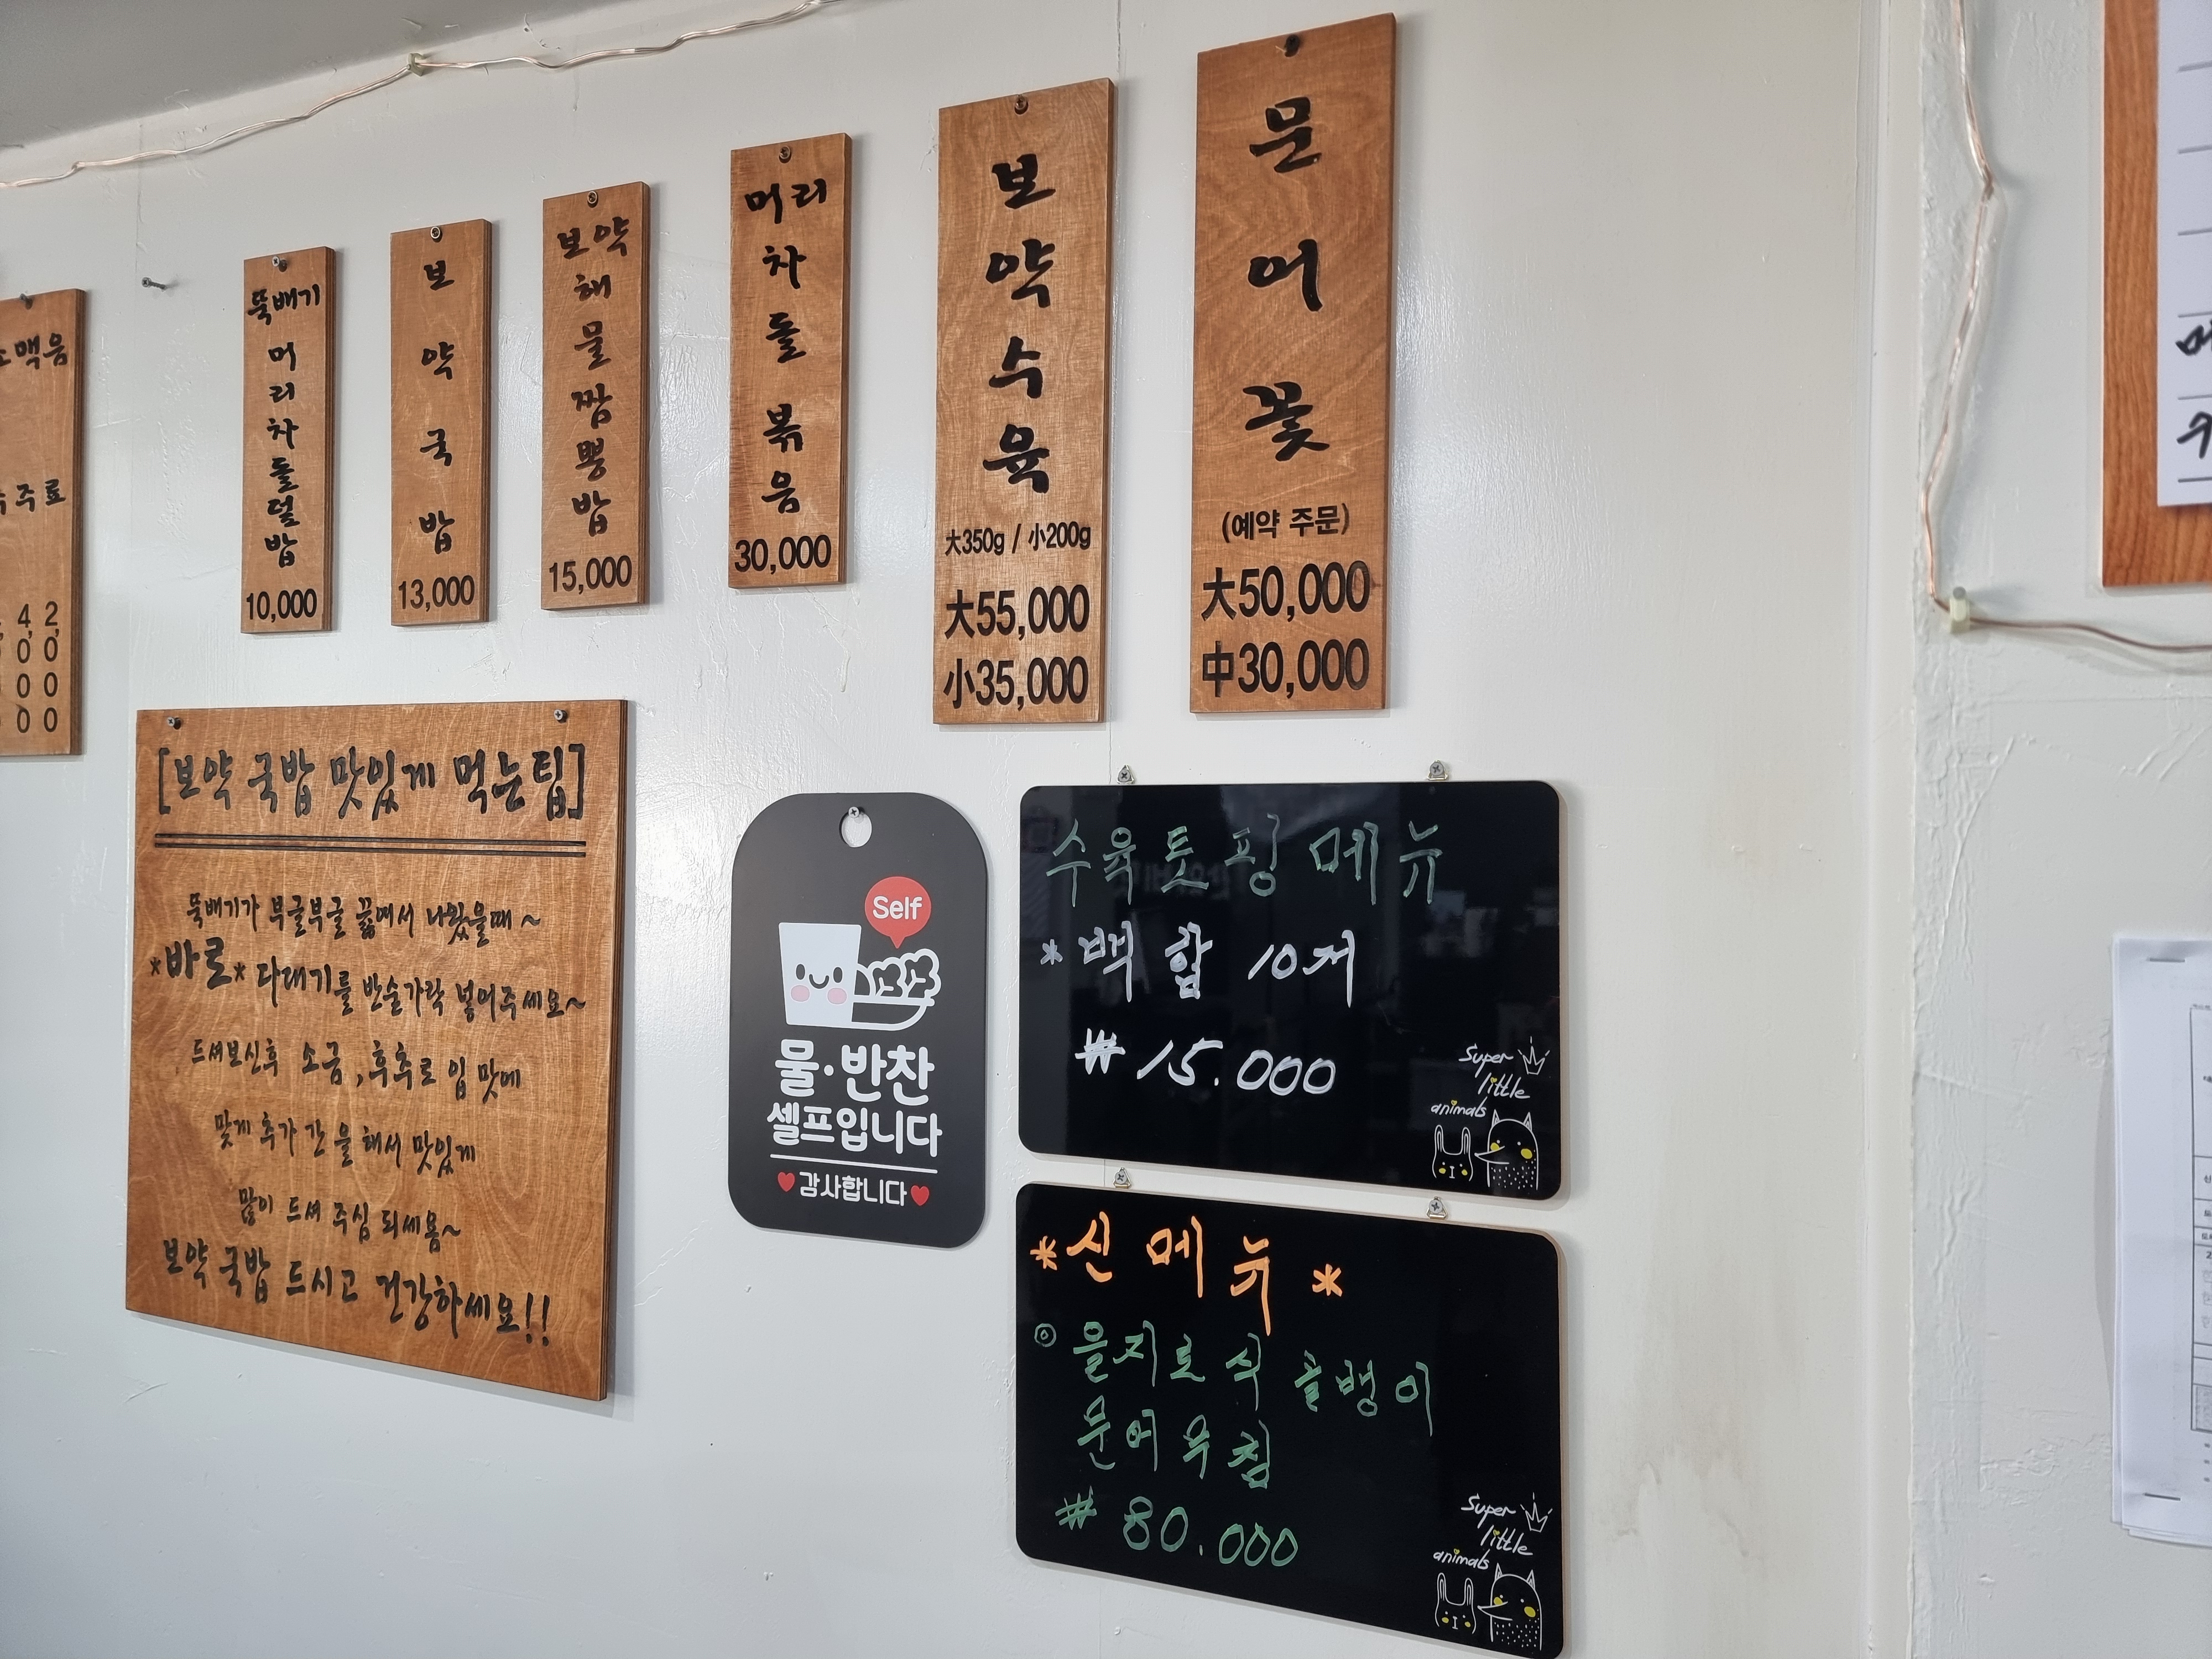 맥음
주료
4, 2,
0 0
0 0
0 0
뚝배기
머
리
차
돌
덮
밥
10,000
보
약
국
밥
13,000
보약
해
물
짬
뽕
밥
15,000
머리
차
돌
볶
음
30,000
보
약
수
육
大350g / 小200g
大55,000
小35,000
문
어
꽃
(예약 주문)
大50,000
中30,000
[보약 국밥 맛있게 먹는팁]
뚝배기가 부글부글 끓여서 나왔을때~
*바로* 다대기를 반술가락 넣어주세요~
드셔보신후 소금, 후추로 입 맛에
맞게 추가 간을 해서 맛있게
많이 드셔 주심 되세용~
보약 국밥 드시고 건강하세요!!
Self
물·반찬
셀프입니다
감사합니다
수육토핑 메뉴
*백합 10개
₩15.000
Super
little
animals
*신메뉴*
◎을지로식 골뱅이
문어무침
₩80.000
Super
little
animals